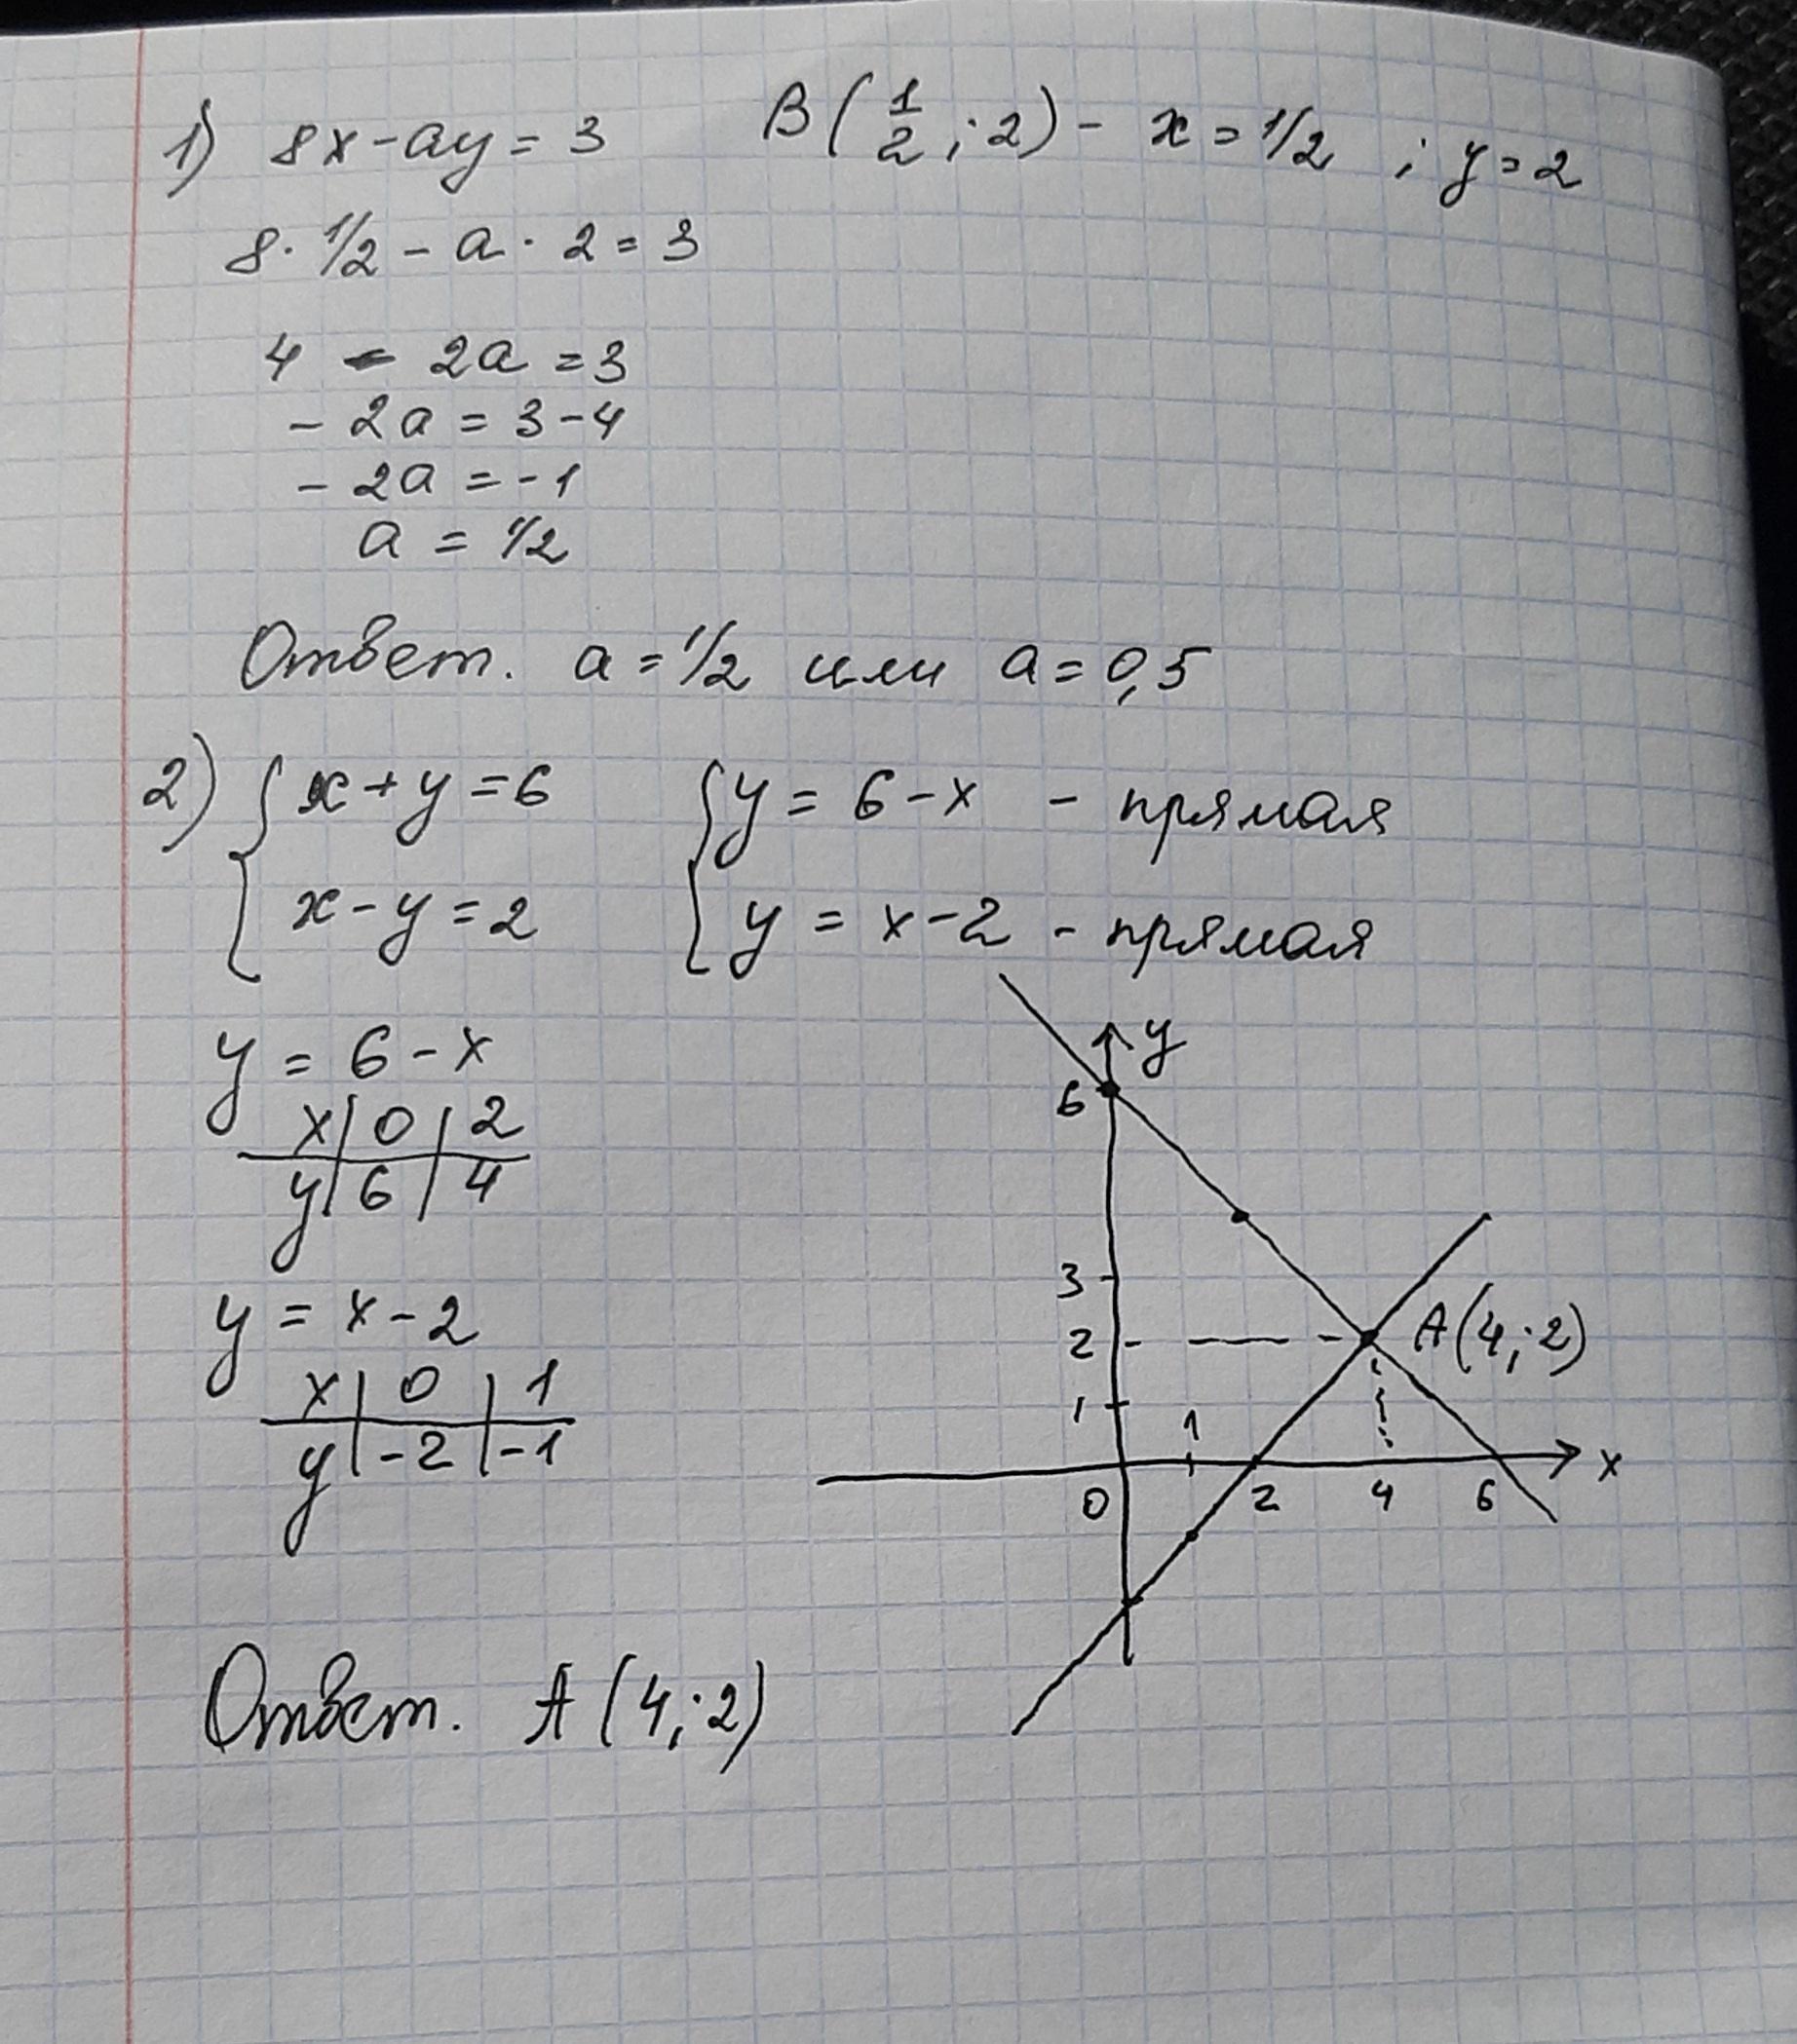 1) 8x - ay = 3 B(1/2; 2) - x = 1/2 ; y = 2
8 · 1/2 - a · 2 = 3
4 - 2a = 3
- 2a = 3 - 4
- 2a = - 1
a = 1/2
Ответ. a = 1/2 или a = 0,5
2) { x + y = 6 { y = 6 - x - прямая
x - y = 2 y = x - 2 - прямая
y = 6 - x
x | 0 | 2
y | 6 | 4
y = x - 2
x | 0 | 1
y | -2 | -1
y
6
3
2 A(4; 2)
1 1
x
0 2 4 6
Ответ. A(4; 2)